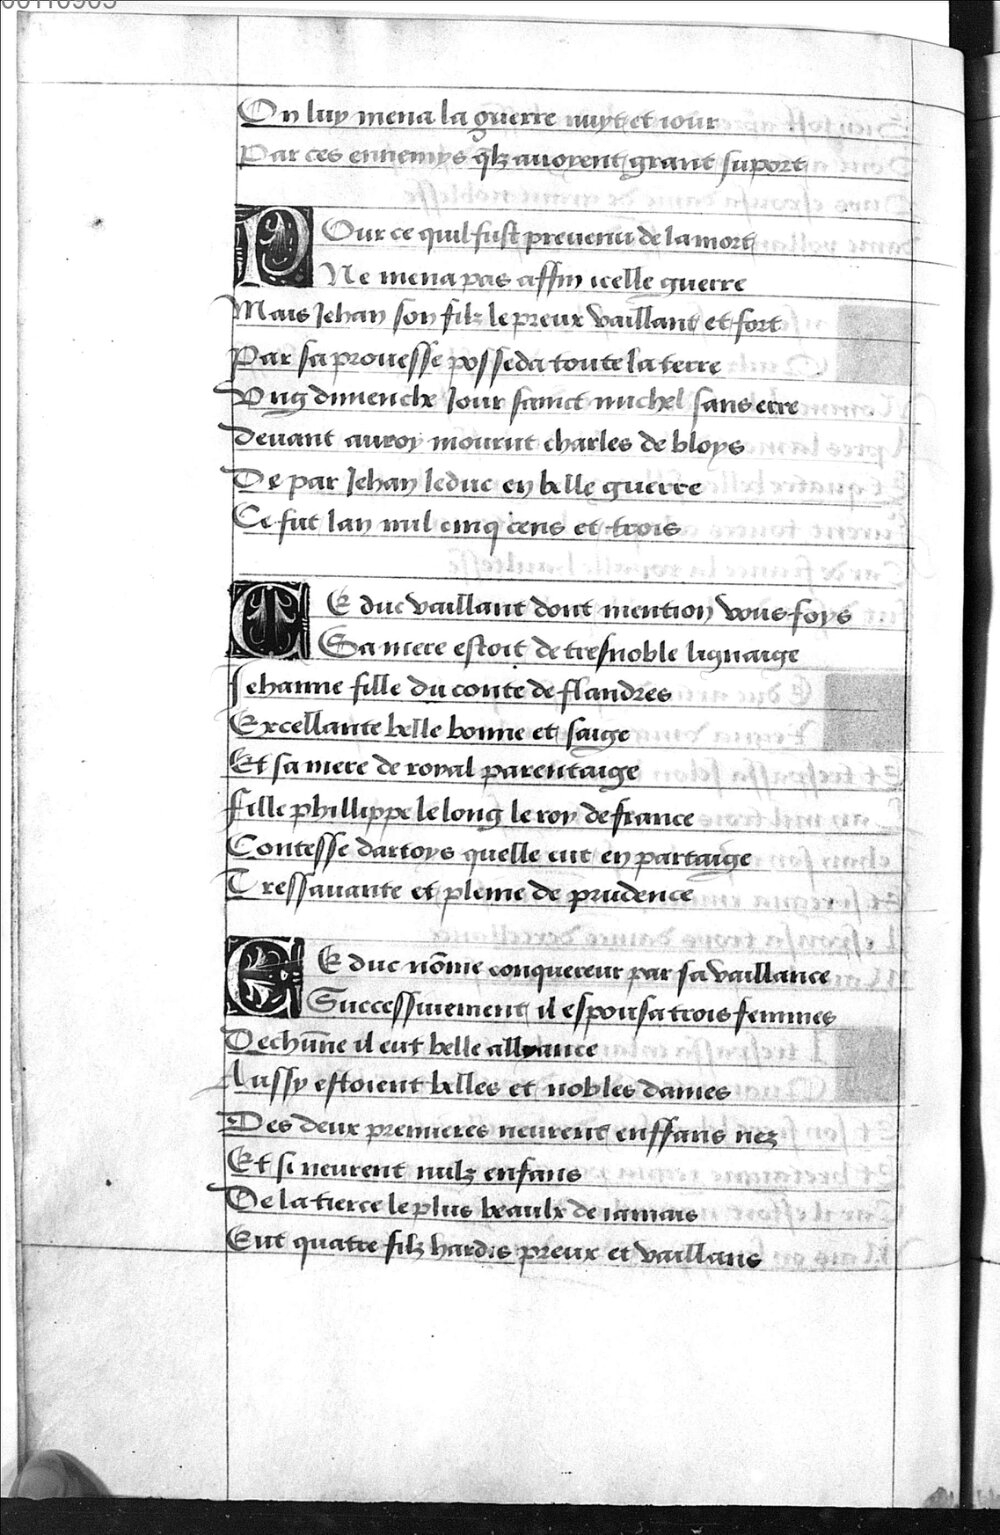 00110905
On luy mena la guerre nuyt et iour
Par ces ennemys qlz auoyent grant suport
POur ce quil fust preuenu de la mort
Ne mena pas affin icelle guerre
Mais Jehan son filz le preux vaillant et fort
Par sa prouesse posseda toute la terre
Vng dimenche Jour sainct michel sans erre
deuant auroy mourut charles de bloys
De par Jehan le duc en belle guerre
Ce fut lan mil cinq cens et trois
CE duc vaillant dont mention vous foys
Sa mere estoit de tresnoble lignaige
Jehanne fille du conte de flandres
Excellante belle bonne et saige
Et sa mere de royal parentaige
fille phillippe le long le roy de france
Contesse dartoys quelle eut en partaige
Tressauante et pleine de prudence
CE duc nōme conquereur par sa vaillance
Successiuement il espousa trois femmes
De chūne il eut belle allyance
Aussy estoient belles et nobles dames
Des deux premieres neurent enffans nez
Et si neurent nulz enfans
De la tierce le plus beaulx de iamais
Eut quatre filz hardis preux et vaillans